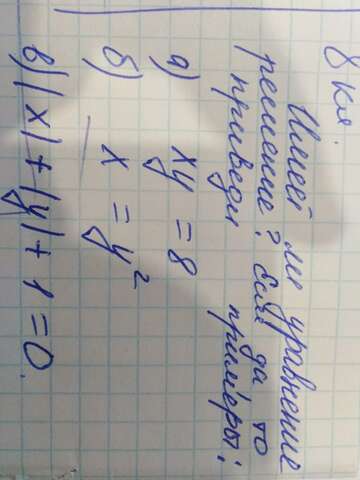 8 кл
Имеет ли уравнение
решение? Если да то
приведи примеры:
а) xy = 8
б) x = y²
в) |x| + |y| + 1 = 0.